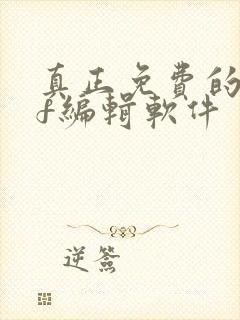 真正免費的
f編輯軟件
逆簽